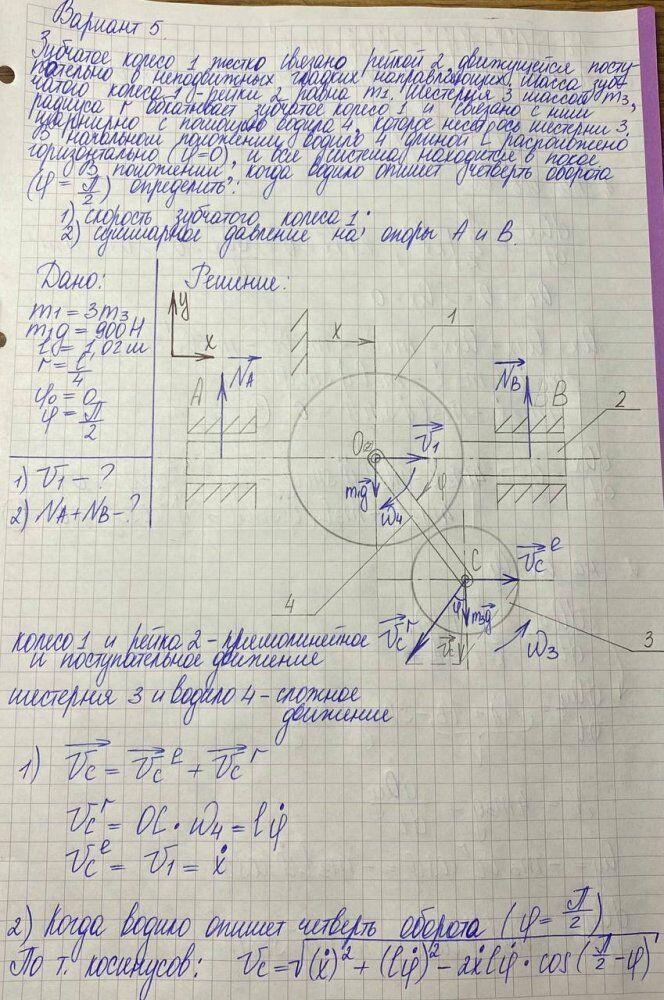 Вариант 5
Зубчатое колесо 1 жестко связано рейкой 2, движущейся посту-
пательно в неподвижных гладких направляющих. Масса зуб-
чатого колеса 1 и рейки 2 равна m1. Шестерня 3 массой m3,
радиуса r обкатывает зубчатое колесо 1 и связано с ним
шарнирно с помощью водила 4, которое несет ось шестерни 3.
В начальном положении водило 4 длиной l расположено
горизонтально (φ=0), и вся система находится в покое.
В положении, когда водило опишет четверть оборота
(φ = π/2) определить:
1) скорость зубчатого колеса 1.
2) суммарное давление на опоры A и B.
Дано:
m1 = 3m3
m1g = 900H
l = 1,02 м
r = l/4
φ0 = 0
φ = π/2
1) V1 - ?
2) NA + NB - ?
Решение:
y
x
x
1
A
NA
NB
B
2
O
V1
m1g
ω4
φ
C
Vc e
4
Vc r
φ
m3g
Vc
ω3
3
колесо 1 и рейка 2 - прямолинейное
и поступательное движение
шестерня 3 и водило 4 - сложное
движение
1) Vc = Vc e + Vc r
Vc r = OC · ω4 = lφ̇
Vc e = V1 = ẋ
2) Когда водило опишет четверть оборота (φ = π/2)
По т. косинусов: Vc = √(ẋ)² + (lφ̇)² - 2ẋlφ̇ · cos(π/2 - φ)